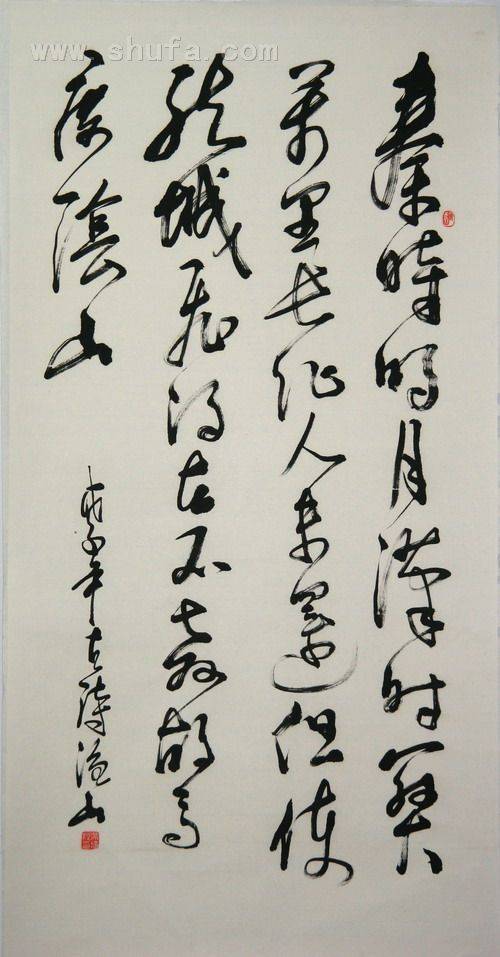 www.shufa.com
秦時明月漢时關
萬里長征人未還但使
龍城飛將在不教胡馬
度陰山
戊子年古詩